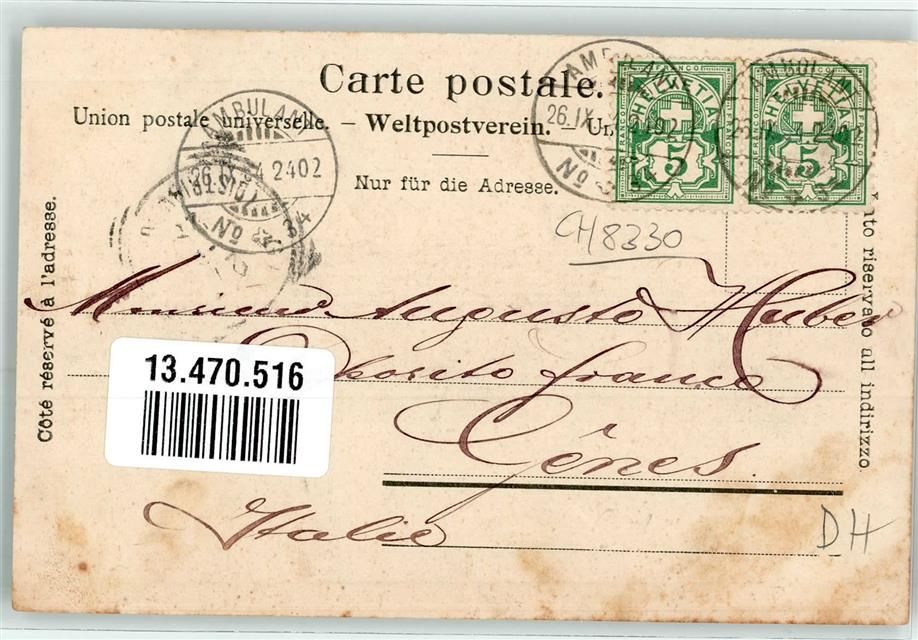 Carte postale.
Union postale universelle. – Weltpostverein. – Un
Nur für die Adresse.
AMBULANT
26.IX.04 2402
No 34
AMBULANT
26.IX
No 34
AMBULANT
No
HELVETIA
FRANCO
5
HELVETIA
FRANCO
5
CH 8330
Côté réservé à l'adresse.
riservato all indirizzo
Monsieur Augusto Huber
Deposito franco
Gênes.
Italie
13.470.516
DH